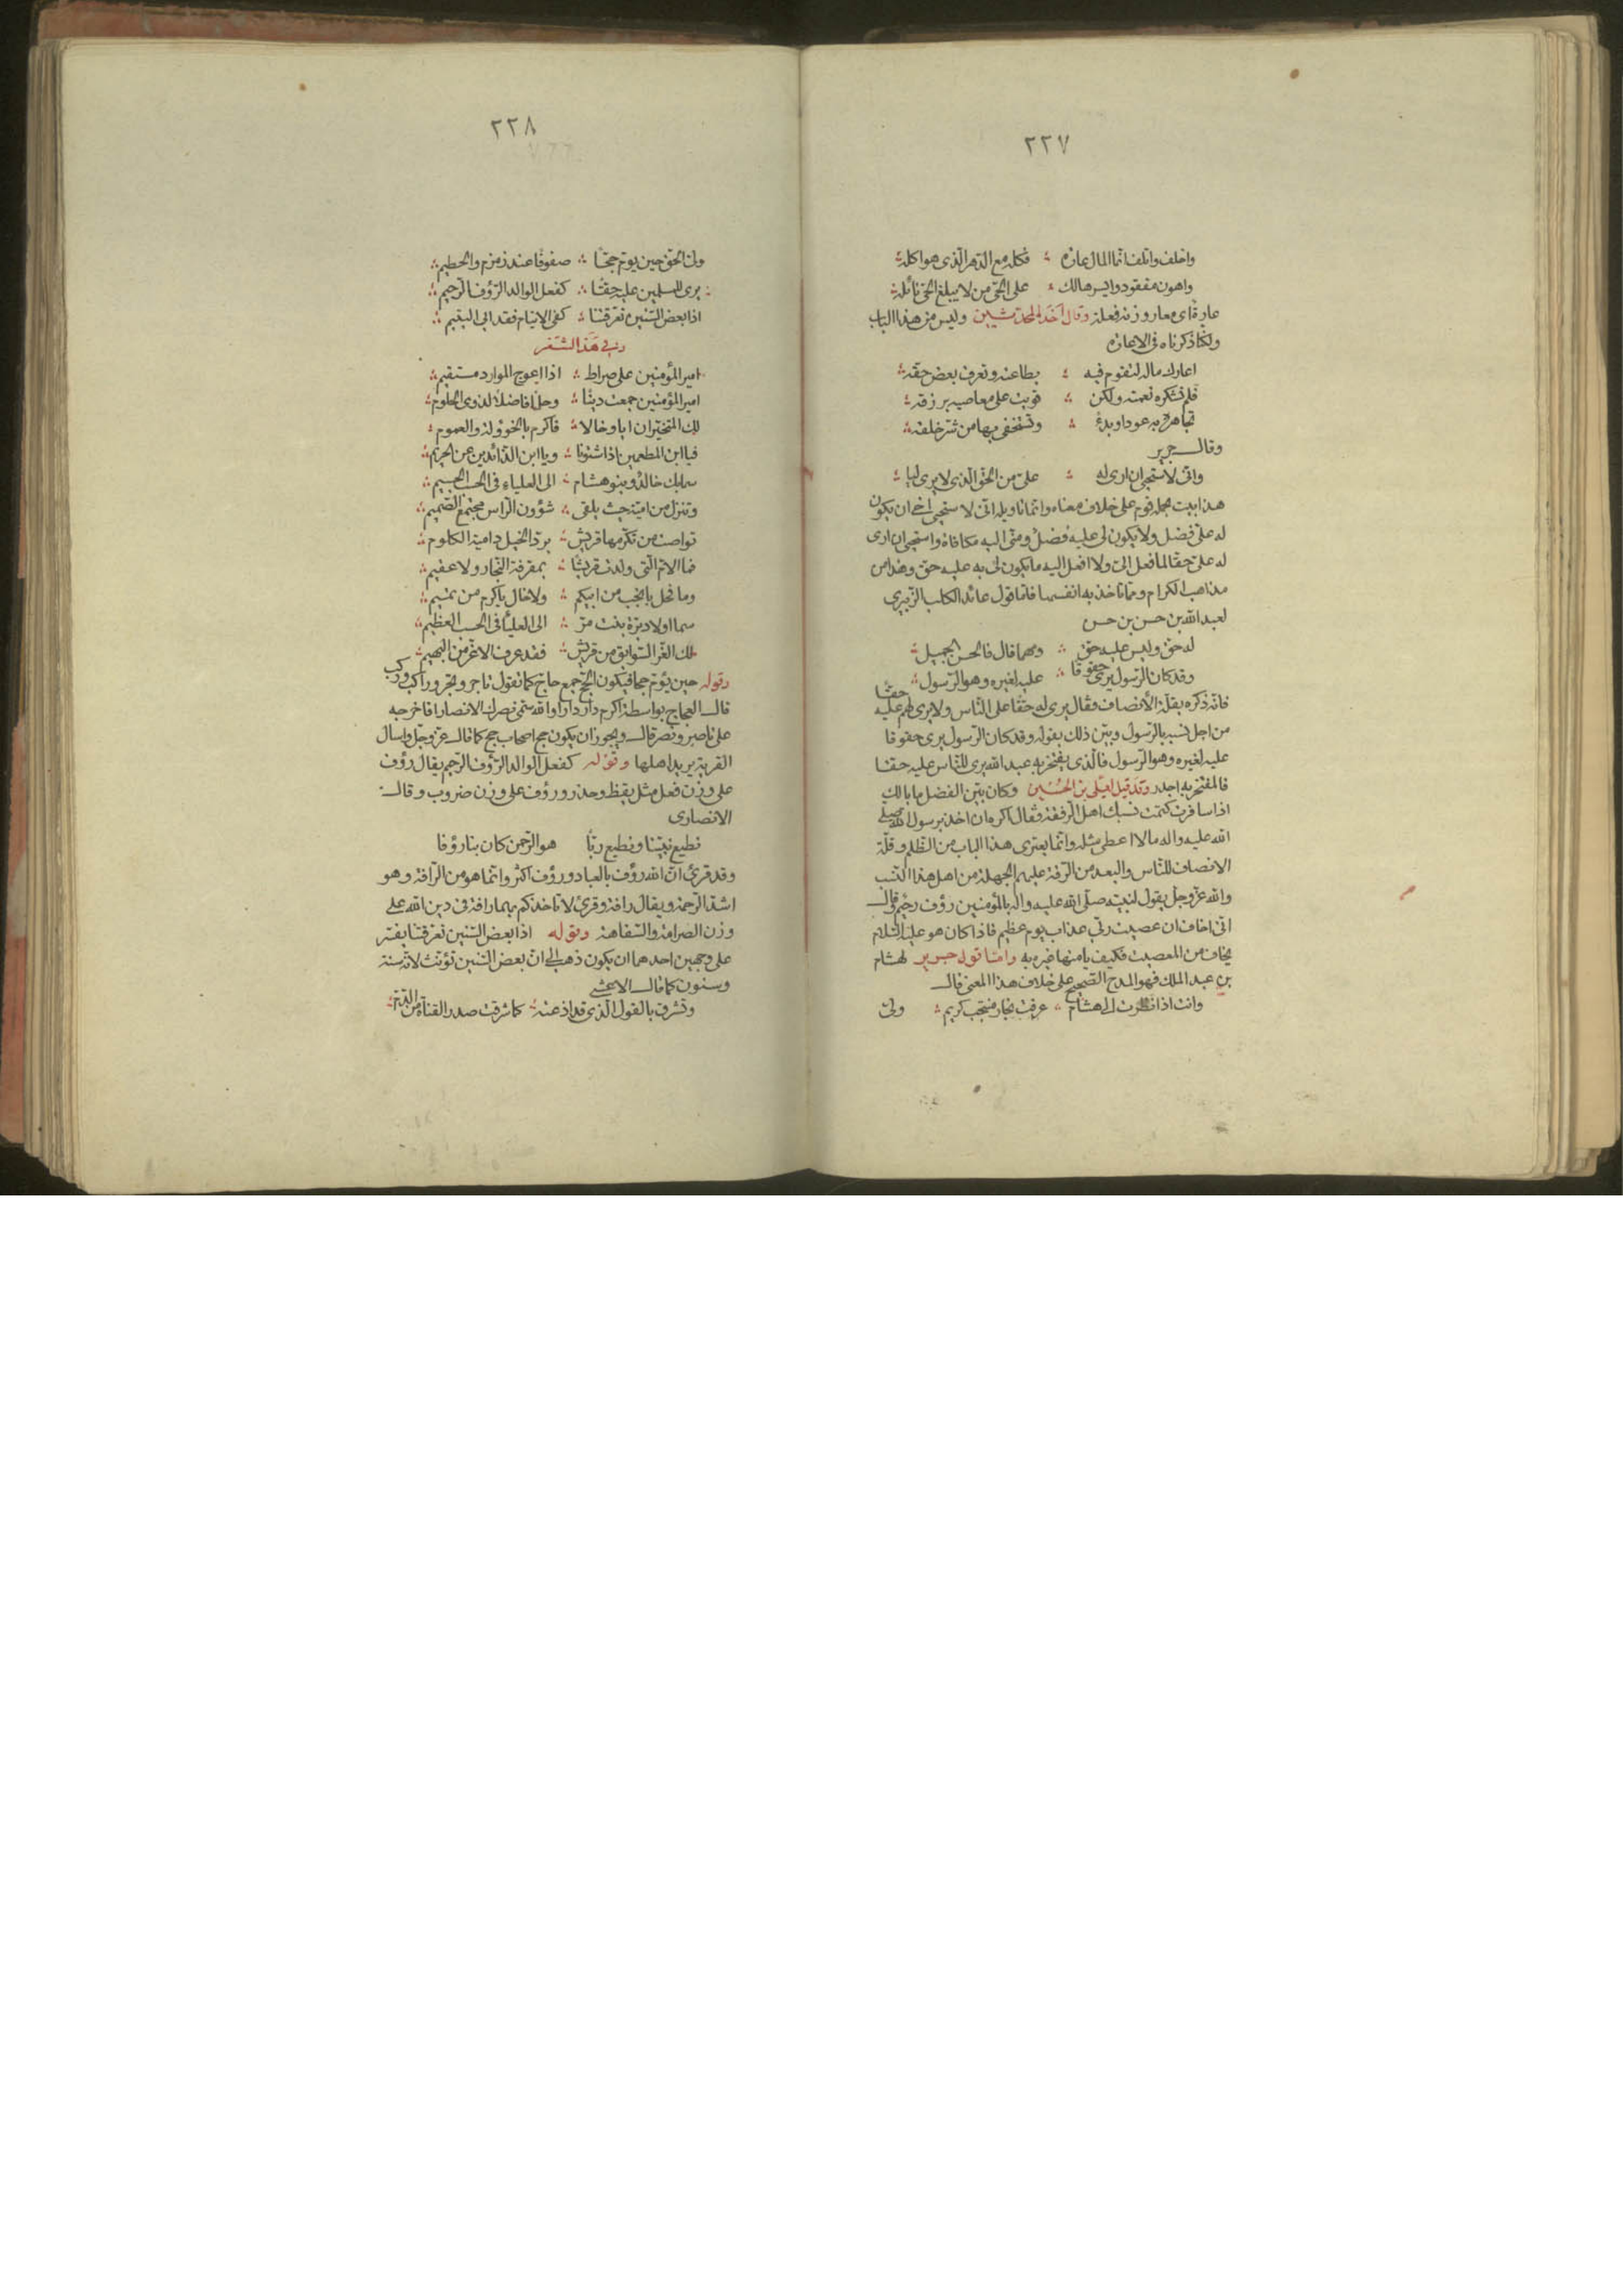 ٢٢٧
واخلف واتلف انما المال عارة ؞ فكله مع الدهر الذى هو اكله
واهون مفقود وايسر هالك ؞ على الحى من لا يبلغ الحى نائله
عارة اى معار وزنه فعلة وقال احد المحدثين وليس من هذا الباب
ولكنا ذكرناه فى الاعارة
اعارك ماله لتقوم فيه ؞ بطاعته وتعرف بعض حقه
فلم تشكره نعمته ولكن ؞ قويت على معاصيه برزقه
تجاهره به عودا وبدءً ؞ وتستخفى بها من شر خلقه
وقال جرير
وانى لاستحيى ان ارى له ؞ على من الحق الذى لا يرى ليا
هذا بيت يحمله قوم على خلاف معناه وانما تاويله انى لاستحيى اخى ان يكون
له على فضل ولا يكون لى عليه فضل ومنى اليه مكافاة واستحيى ان ارى
له على حقا لما فعل الى ولا افعل اليه ما يكون لى به عليه حق وهذا من
مذاهب الكرام ومما تاخذ به انفسها فاما قول عائد الكلب الزبيرى
لعبد الله بن حسن بن حسن
له حق وليس عليه حق ؞ ومهما قال فالحسن الجميل
وقد كان الرسول يرى حقوقا ؞ عليه لغيره وهو الرسول
فانه ذكره بقلة الانصاف فقال يرى له حقا على الناس ولا يرى لهم عليه حقا
من اجل نسبه بالرسول وبين ذلك بقوله وقد كان الرسول يرى حقوقا
عليه لغيره وهو الرسول فالذى يفتخر به عبد الله يرى للناس عليه حقا
فالمفتخر به اجدر وقد قيل لعلى بن الحسين وكان بين الفضل ما بالك
اذا سافرت كتمت نسبك اهل الرفقة فقال اكره ان اخذ برسول الله صلى
الله عليه واله ما لا اعطى مثله وانما يعترى هذا الباب من الظلم وقلة
الانصاف للناس والبعد من الرقة عليهم الجهلة من اهل هذا النسب
والله عز وجل يقول لنبيه صلى الله عليه واله بالمؤمنين رؤف رحيم قال
انى اخاف ان عصيت ربى عذاب يوم عظيم فاذا كان هو عليه السلام
يخاف من المعصية فكيف يامنها غيره به واما قول جرير لهشام
بن عبد الملك فهو المدح الصحيح على خلاف هذا المعنى قال
وانت اذا نظرت الى هشام ؞ عرفت نجار منتجب كريم ؞ ولى
٢٢٨
ولى الحق حين يؤم حجا ؞ صفوفا عند زمزم والحطيم
يرى للمسلمين عليه حقا ؞ كفعل الوالد الرؤف الرحيم
اذا بعض السنين تعرقتنا ؞ كفى الايتام فقد ابى اليتيم
وفى هذا الشعر
امير المؤمنين على صراط ؞ اذا اعوج الموارد مستقيم
امير المؤمنين جمعت دينا ؞ وحلما فاضلا لذوى الحلوم
لك المتخيران ابا وخالا ؞ فاكرم بالخؤولة والعموم
فيا ابن المطعمين اذا شتونا ؞ ويا ابن الذائدين عن الحريم
سما بك خالد وبنو هشام ؞ الى العلياء فى الحسب الجسيم
وتنزل من امية حيث يلقى ؞ شؤون الراس مجتمع الصميم
تواصت من تكرمها قريش ؞ برد الخيل دامية الكلوم
فما الام التى ولدت قريشا ؞ بمقرفة النجار ولا عقيم
وما فحل بانجب من ابيكم ؞ ولا خال باكرم من تميم
سما اولاد برة بنت مر ؞ الى العلياء فى الحسب العظيم
لك الغر السوابق من قريش ؞ فقد عرف الاغر من البهيم
وقوله حين يؤم حجا فيكون الحج جمع حاج كما تقول تاجر وتجر وراكب وركب
قال العجاج بواسط اكرم دار دارا والله سمى نصرك الانصارا فاخرجه
على ناصر ونصر قال ويجوز ان يكون حج اصحاب حج كما قال عز وجل واسال
القرية يريد اهلها وقوله كفعل الوالد الرؤف الرحيم يقال رؤف
على وزن فعل مثل يقظ وحذر ورؤف على وزن ضروب وقال
الانصارى
نطيع نبينا ونطيع ربا هو الرحمن كان بنا رؤفا
وقد قرئ ان الله رؤف بالعباد ورؤف اكثر وانما هو من الرافة وهو
اشد الرحمة ويقال رافة وقرئ لا تاخذكم بهما رافة فى دين الله على
وزن الصرامة والسفاهة وقوله اذا بعض السنين تعرقتنا يفسر
على وجهين احدهما ان يكون ذهب الى ان بعض السنين تؤنث لانه سنة
وسنون كما قال الاعشى
وتشرق بالقول الذى قد اذعته ؞ كما شرقت صدر القناة من الدم